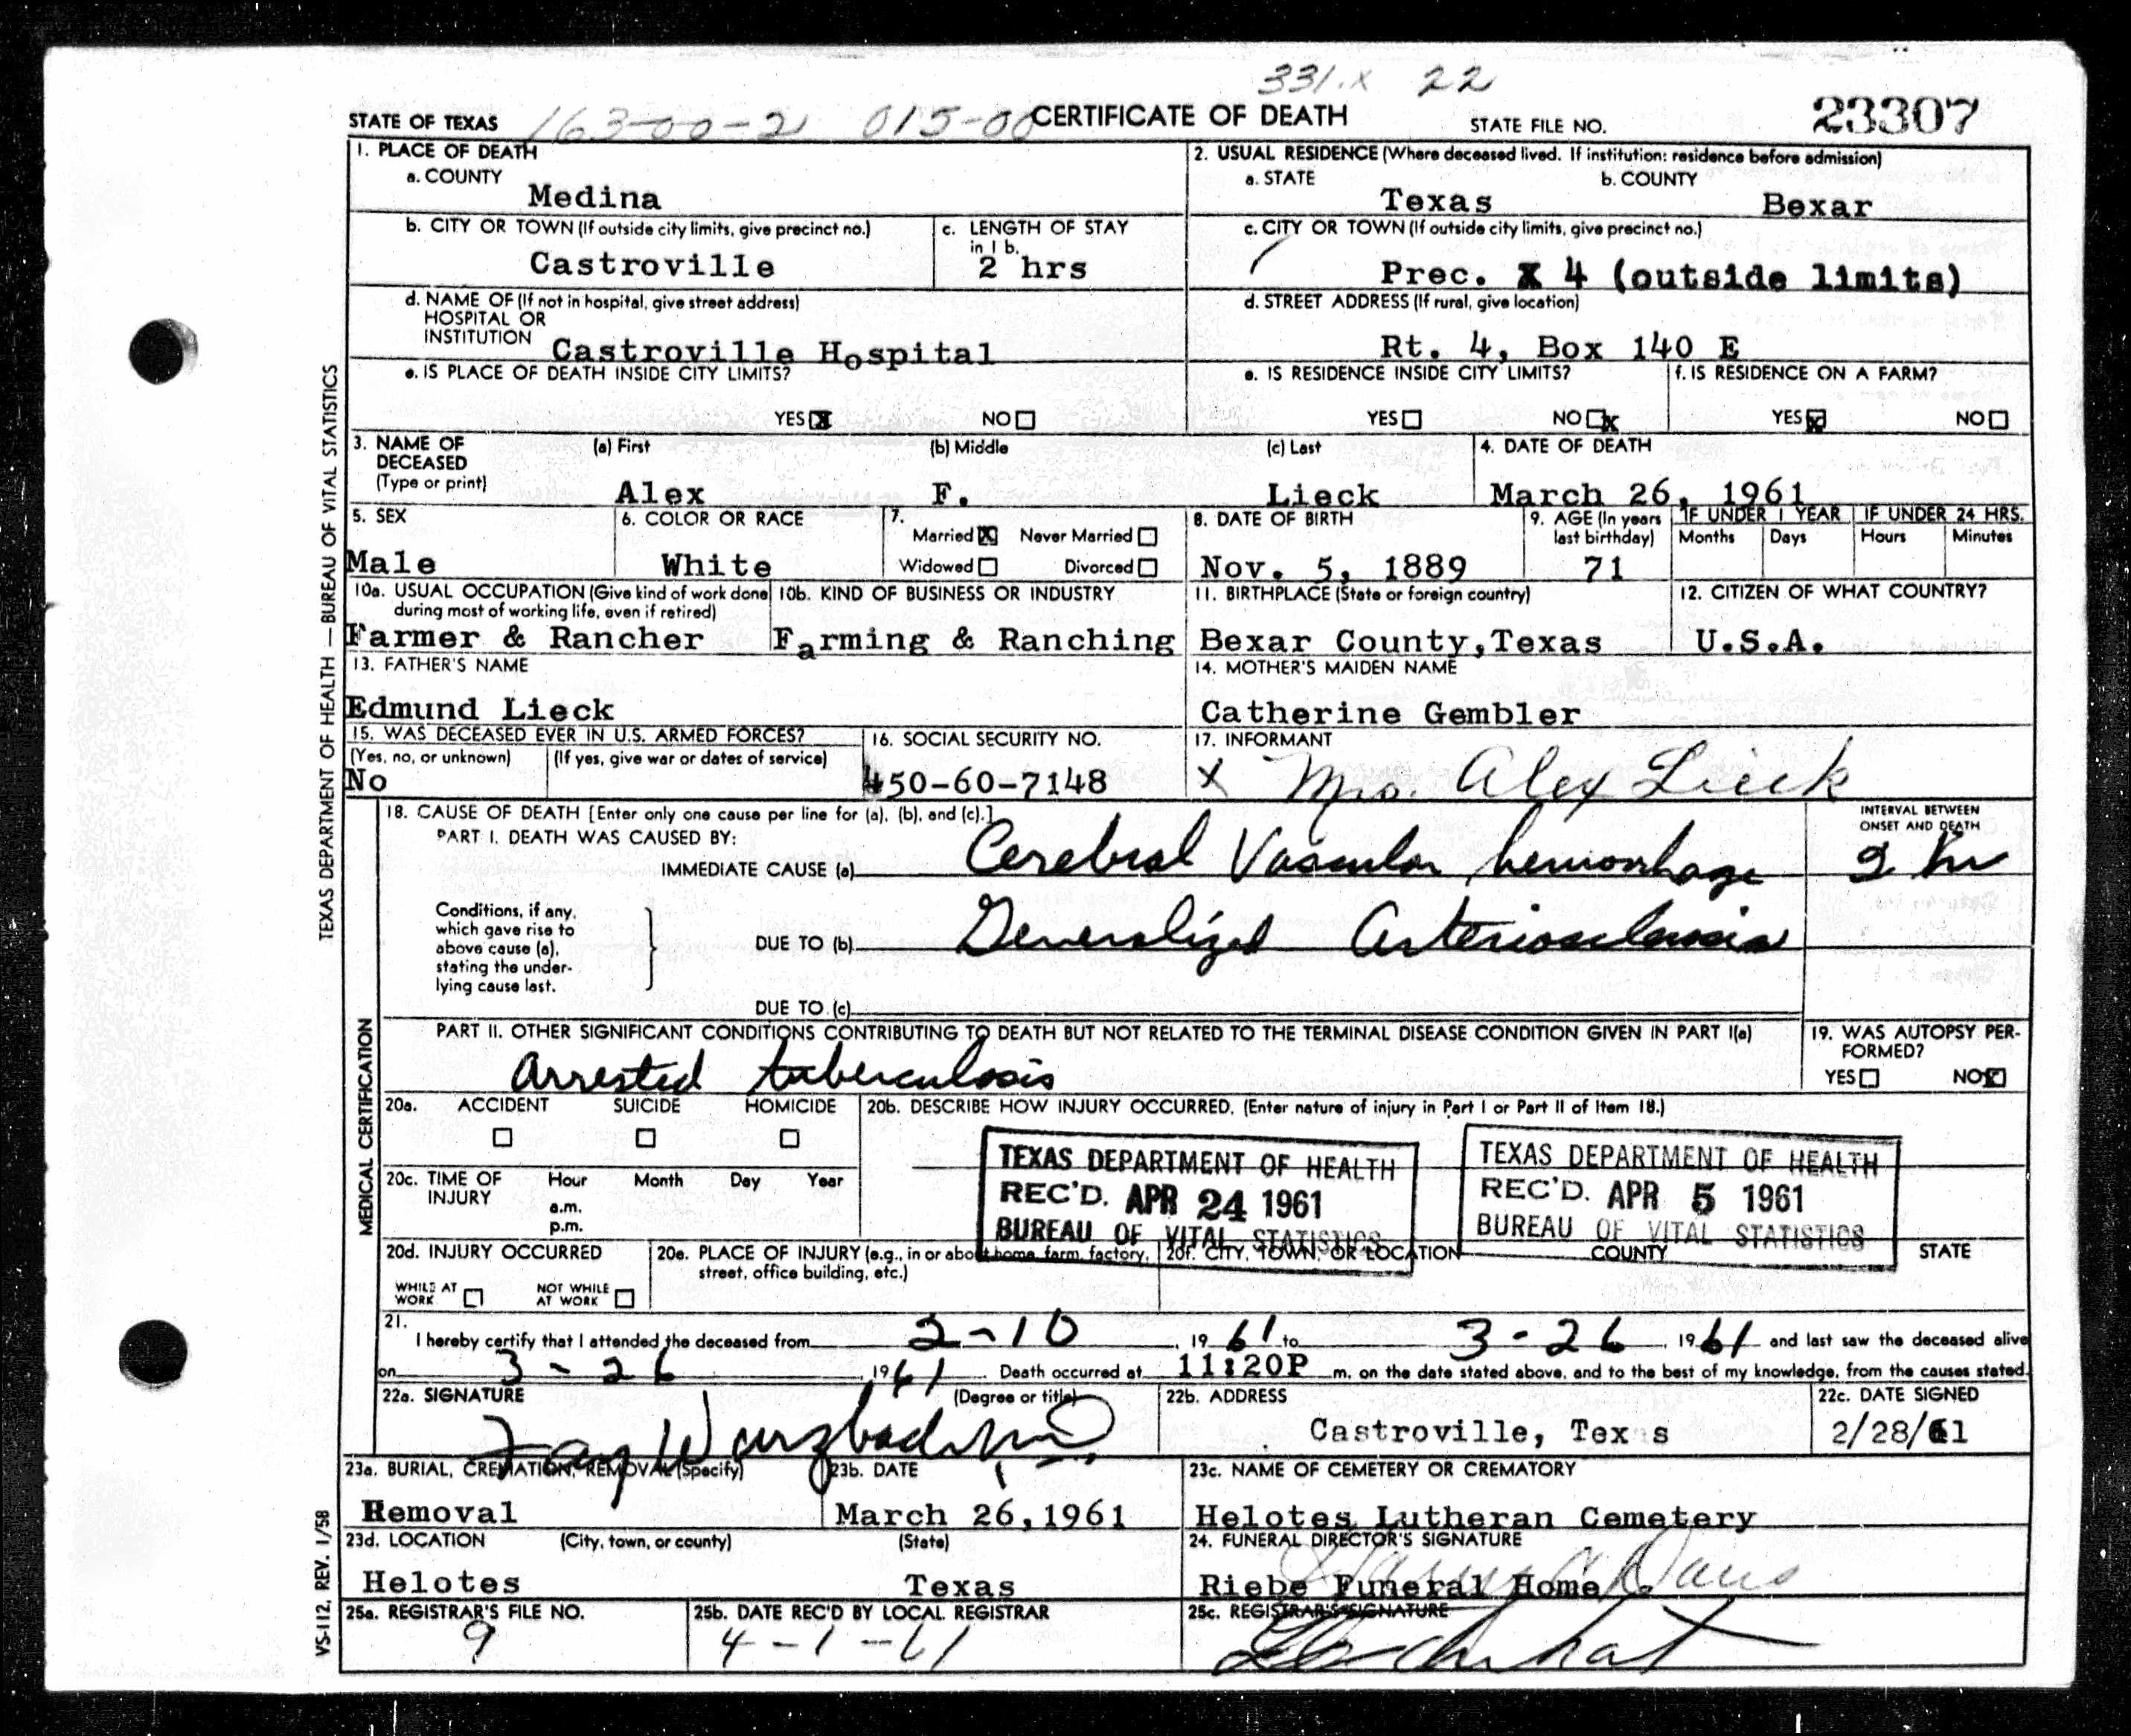 331.x 22
STATE OF TEXAS 163-00-2 015-00 CERTIFICATE OF DEATH STATE FILE NO. 23307
1. PLACE OF DEATH
a. COUNTY
Medina
2. USUAL RESIDENCE (Where deceased lived. If institution: residence before admission)
a. STATE b. COUNTY
Texas Bexar
b. CITY OR TOWN (If outside city limits, give precinct no.)
Castroville
c. LENGTH OF STAY
in 1 b.
2 hrs
c. CITY OR TOWN (If outside city limits, give precinct no.)
Prec. X 4 (outside limits)
d. NAME OF (If not in hospital, give street address)
HOSPITAL OR
INSTITUTION Castroville Hospital
d. STREET ADDRESS (If rural, give location)
Rt. 4, Box 140 E
e. IS PLACE OF DEATH INSIDE CITY LIMITS?
YES X NO
e. IS RESIDENCE INSIDE CITY LIMITS?
YES NO X
f. IS RESIDENCE ON A FARM?
YES X NO
3. NAME OF
DECEASED
(Type or print)
(a) First (b) Middle (c) Last
Alex F. Lieck
4. DATE OF DEATH
March 26, 1961
5. SEX
Male
6. COLOR OR RACE
White
7.
Married X Never Married
Widowed Divorced
8. DATE OF BIRTH
Nov. 5, 1889
9. AGE (In years
last birthday)
71
IF UNDER 1 YEAR
Months Days
IF UNDER 24 HRS.
Hours Minutes
10a. USUAL OCCUPATION (Give kind of work done
during most of working life, even if retired)
Farmer & Rancher
10b. KIND OF BUSINESS OR INDUSTRY
Farming & Ranching
11. BIRTHPLACE (State or foreign country)
Bexar County,Texas
12. CITIZEN OF WHAT COUNTRY?
U.S.A.
13. FATHER'S NAME
Edmund Lieck
14. MOTHER'S MAIDEN NAME
Catherine Gembler
15. WAS DECEASED EVER IN U.S. ARMED FORCES?
(Yes, no, or unknown) (If yes, give war or dates of service)
No
16. SOCIAL SECURITY NO.
450-60-7148
17. INFORMANT
X Mrs. Alex Lieck
18. CAUSE OF DEATH [Enter only one cause per line for (a), (b), and (c).]
PART I. DEATH WAS CAUSED BY:
IMMEDIATE CAUSE (a) Cerebral Vascular hemorrhage
INTERVAL BETWEEN
ONSET AND DEATH
2 hr
Conditions, if any,
which gave rise to
above cause (a),
stating the under-
lying cause last.
DUE TO (b) Generalized Arteriosclerosis
DUE TO (c)
PART II. OTHER SIGNIFICANT CONDITIONS CONTRIBUTING TO DEATH BUT NOT RELATED TO THE TERMINAL DISEASE CONDITION GIVEN IN PART I(a)
Arrested tuberculosis
19. WAS AUTOPSY PER-
FORMED?
YES NO X
20a. ACCIDENT SUICIDE HOMICIDE
20b. DESCRIBE HOW INJURY OCCURRED. (Enter nature of injury in Part I or Part II of Item 18.)
TEXAS DEPARTMENT OF HEALTH
REC'D. APR 24 1961
BUREAU OF VITAL STATISTICS
TEXAS DEPARTMENT OF HEALTH
REC'D. APR 5 1961
BUREAU OF VITAL STATISTICS
20c. TIME OF
INJURY
Hour Month Day Year
a.m.
p.m.
20d. INJURY OCCURRED
WHILE AT
WORK
NOT WHILE
AT WORK
20e. PLACE OF INJURY (e.g., in or about home, farm, factory,
street, office building, etc.)
20f. CITY, TOWN, OR LOCATION COUNTY STATE
21.
I hereby certify that I attended the deceased from 2-10, 1961 to 3-26, 1961 and last saw the deceased alive
on 3-26, 1961. Death occurred at 11:20P m. on the date stated above, and to the best of my knowledge, from the causes stated.
22a. SIGNATURE (Degree or title)
22b. ADDRESS
Castroville, Texas
22c. DATE SIGNED
2/28/61
23a. BURIAL, CREMATION, REMOVAL (Specify)
Removal
23b. DATE
March 26,1961
23c. NAME OF CEMETERY OR CREMATORY
Helotes Lutheran Cemetery
23d. LOCATION (City, town, or county) (State)
Helotes Texas
24. FUNERAL DIRECTOR'S SIGNATURE
Riebe Funeral Home
25a. REGISTRAR'S FILE NO.
9
25b. DATE REC'D BY LOCAL REGISTRAR
4-1-61
25c. REGISTRAR'S SIGNATURE
TEXAS DEPARTMENT OF HEALTH — BUREAU OF VITAL STATISTICS
MEDICAL CERTIFICATION
VS-112, REV. 1/58